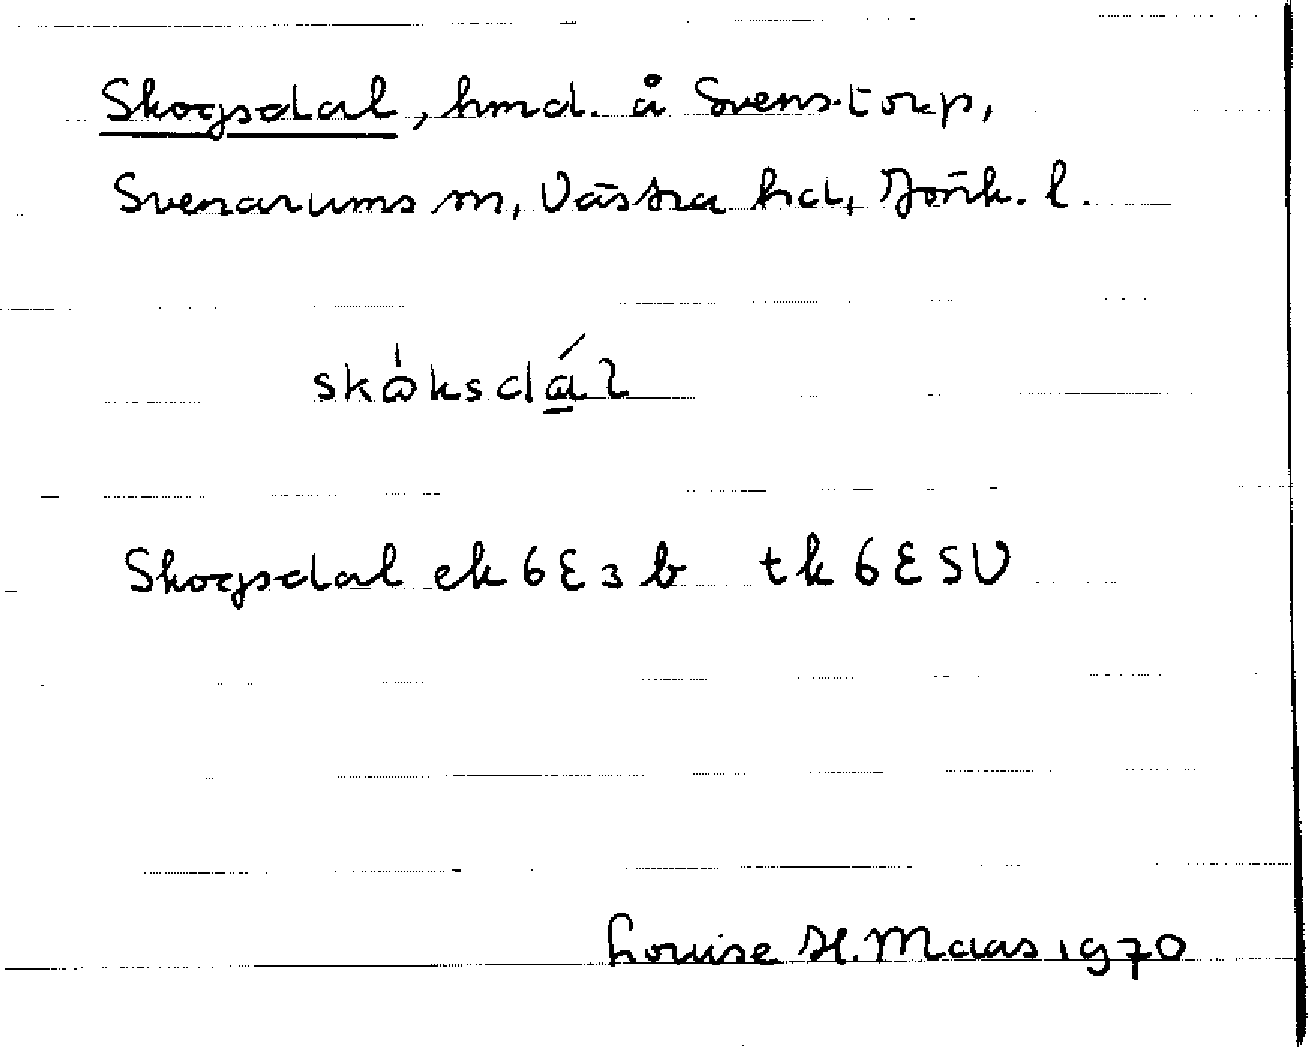 Skogsdal, hmd. å Svenstorp,
Svenarums sn, Västra hd, Jönk. l.
skȯksdál
Skogsdal ek 6E3b tk 6E SV
Louise H. Maas 1970